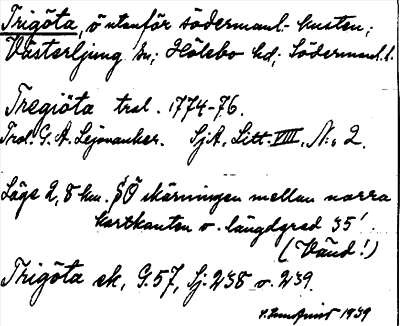 Trigöta, ö utanför södermanl. kusten;
Västerljung sn; Hölebo hd; Södermanl. l.
Tregiöta tral. 1774-76.
Trol. G. A. Lejonanker. SjA, Litt. VIII, N:o 2.
Läge 2,8 km. SÖ skärningen mellan norra
kartkanten o. längdgrad 35'.
(Vänd!)
Trigöta ek, G. 57, Sj. 238 o. 239.
1939